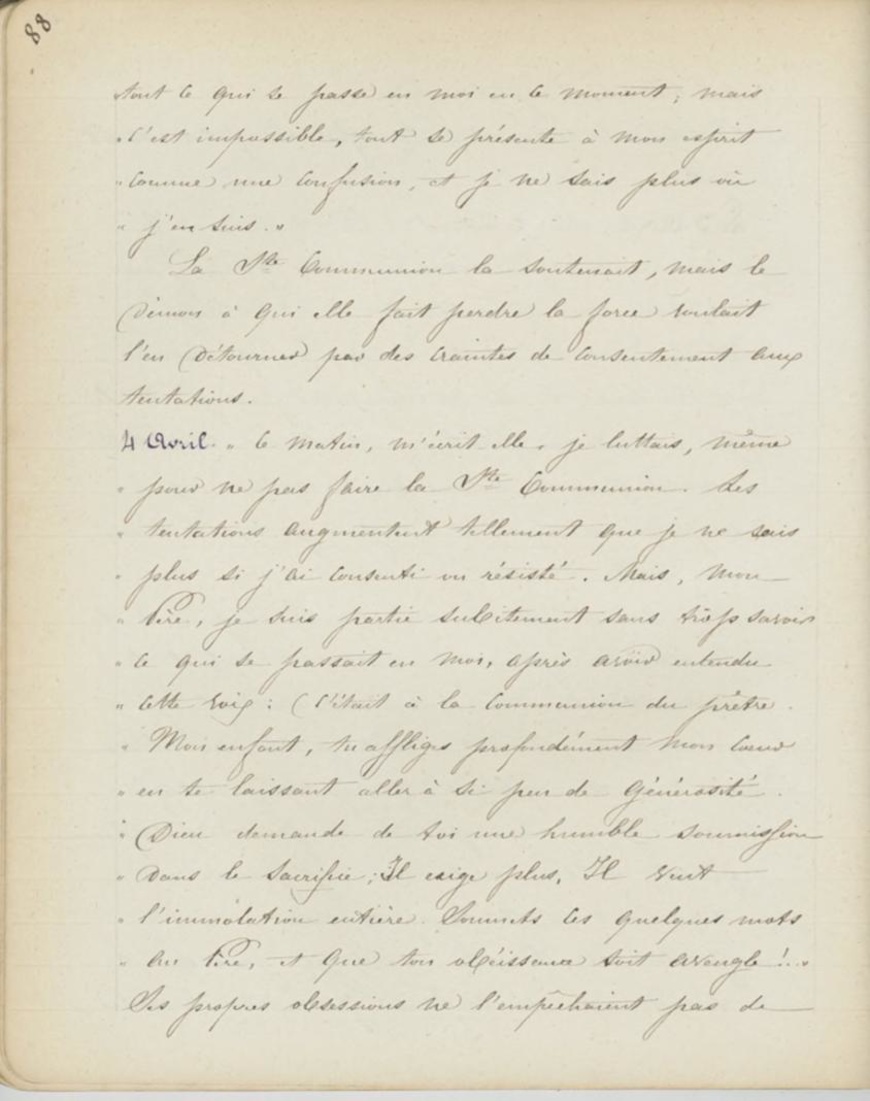 88
"tout ce qui se passe en moi en ce moment ; mais
"c'est impossible, tout se présente à mon esprit
"comme une confusion, et je ne sais plus où
"j'en suis. "
La Ste Communion la soutenait, mais le
Démon à qui elle fait perdre la force voulait
l'en détourner par des craintes de consentement aux
tentations.
4 Avril. " Ce matin, m'écrit elle, je luttais, même
" pour ne pas faire la Ste Communion. Les
" tentations augmentent tellement que je ne sais
" plus si j'ai consenti ou résisté. Mais, mon
" Père, je suis partie subitement sans trop savoir
" ce qui se passait en moi, après avoir entendu
" cette voix : (C'était à la Communion du prêtre.
" Mon enfant, tu affliges profondément mon Coeur
" en te laissant aller à si peu de générosité.
" Dieu demande de toi une humble soumission
" dans le sacrifice ; Il exige plus, Il veut
" l'immolation entière. Soumets ces quelques mots
" au Père, et que ton obéissance soit aveugle !.. "
Ses propres obsessions ne l'empêchaient pas de